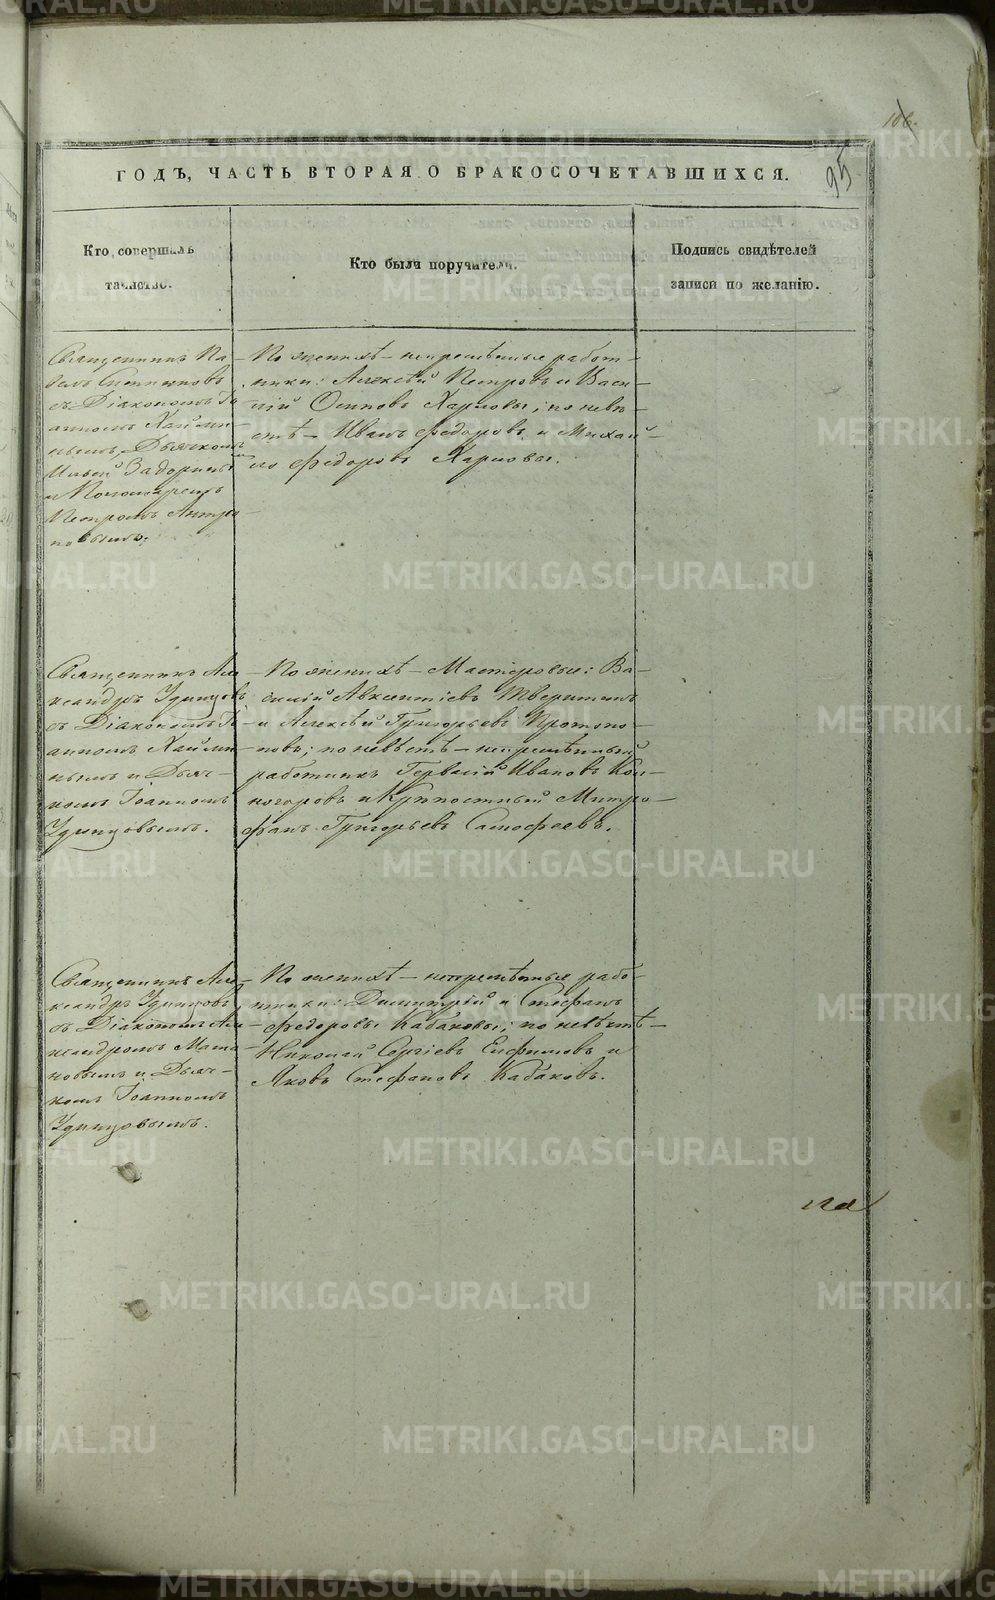 106.
95
ГОДЪ, ЧАСТЬ ВТОРАЯ О БРАКОСОЧЕТАВШИХСЯ.
Кто совершалъ
таинство.
Кто были поручители.
Подпись свидѣтелей
записи по желанію.
Священникъ Па-
велъ
съ Діакономъ Іо
анномъ Хайми-
нымъ, Дьячкомъ
Ильей Задоринымъ
и Пономаремъ
Петромъ Антро
повымъ.
По женихѣ – непремѣнные работ-
ники: Алексѣй Петровъ и Васи-
лій Осиповъ Харловы; по невѣ
стѣ – Иванъ Федоровъ и Михай-
ло Федоровъ Харловы.
Священникъ Але
ксандръ Удинцовъ
съ Діакономъ Іо
анномъ Хайми
нымъ и Дьяч-
комъ Іоанномъ
Удинцовымъ.
По женихѣ – Мастеровые: Ва-
силій Авксентіевъ Тверитинъ
и Алексѣй Григорьевъ Протопо-
повъ; по невѣстѣ – непремѣнный
работникъ Гервасій Ивановъ Кон
ногоровъ и Крѣпостный Митро-
фанъ Григорьевъ Самофеевъ.
Священникъ Але
ксандръ Удинцовъ
съ Діакономъ Але
ксандромъ
и Дьяч-
комъ Іоанномъ
Удинцовымъ.
По женихѣ – непремѣнные рабо-
тники: Димитрій и Стефанъ
Федоровы Кабаковы; по невѣстѣ –
Николай Сергіевъ Елфимовъ и
Яковъ Стефановъ Кабаковъ.
METRIKI.GASO-URAL.RU